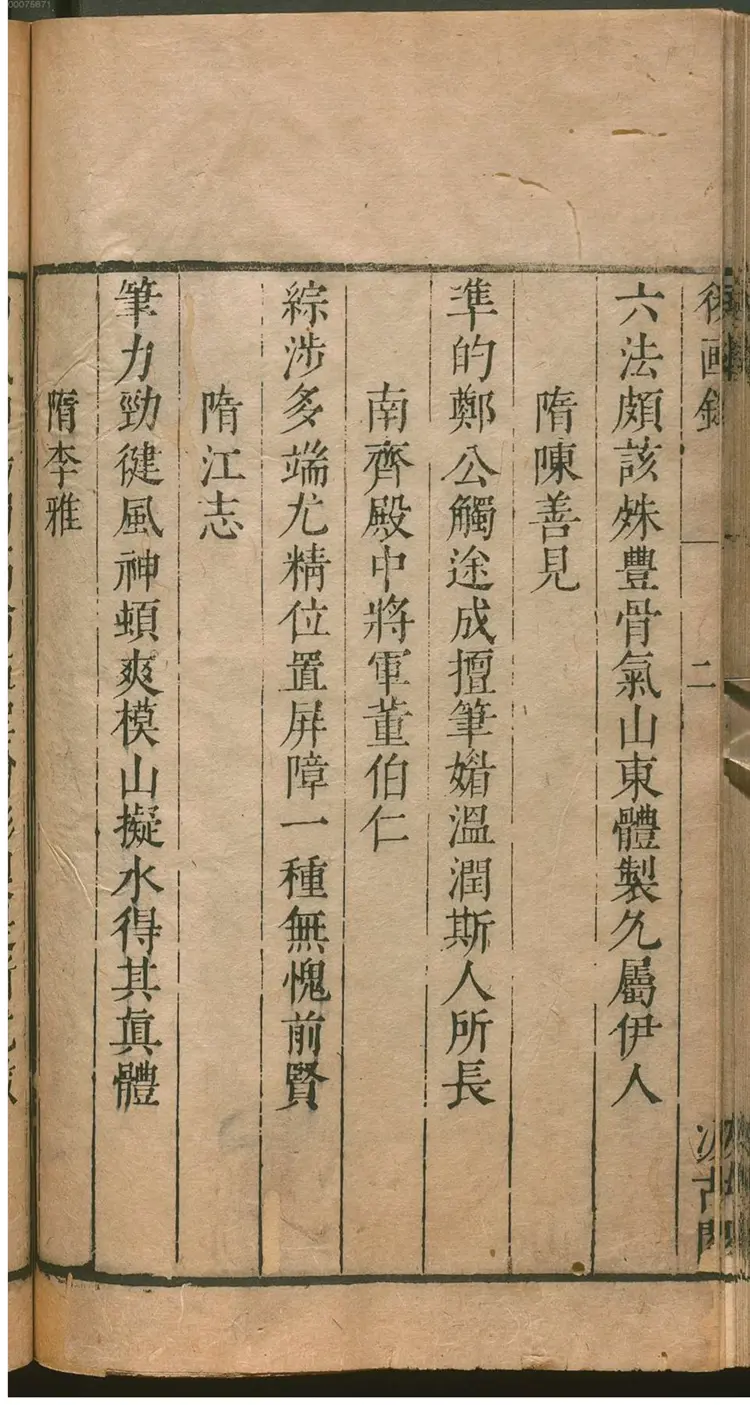 後画錄 二 汲古閣
六法頗該姝豐骨氣山東體製久屬伊人
隋陳善見
準的鄭公觸途成擅筆媘溫潤斯人所長
南齊殿中將軍董伯仁
綜涉多端尤精位置屏障一種無愧前賢
隋江志
筆力勁健風神頓爽模山擬水得其真體
隋李雅
00075871